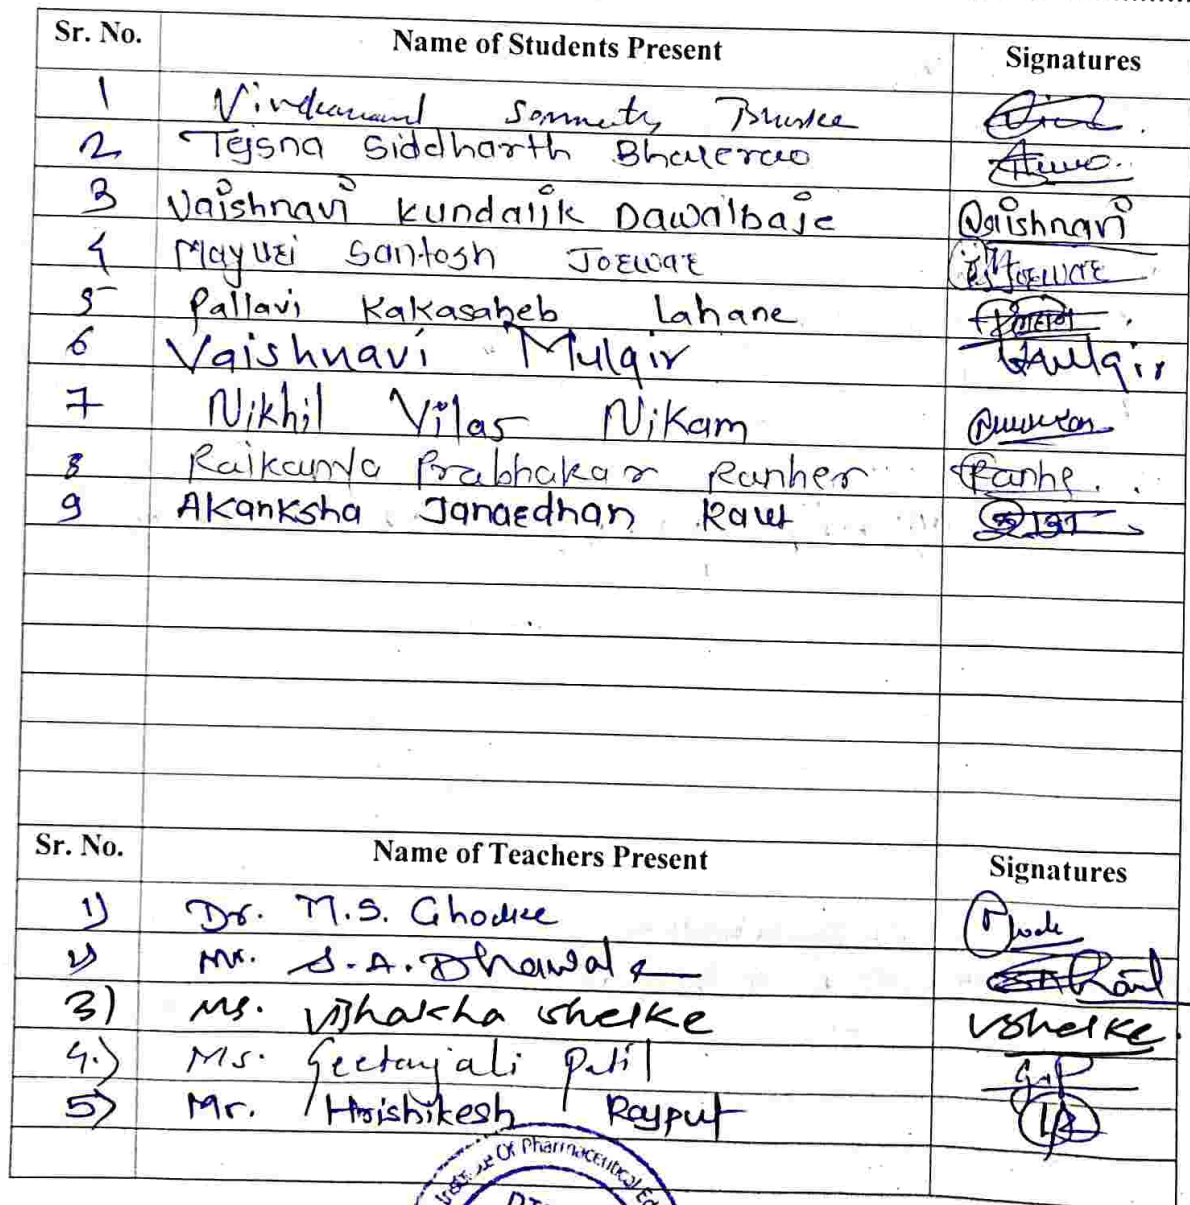 Sr. No. Name of Students Present Signatures
1
2 Tejsna Siddharth Bhalerao
3 Vaishnavi Kundalik Dawalbaje Vaishnavi
4 Mayuri Santosh Jorwar
5 Pallavi Kakasaheb Lahane
6 Vaishnavi Mulgir Mulgir
7 Nikhil Vilas Nikam
8 Prabhakar Ranher Ranhe.
9 Akanksha Janardhan Raut
Sr. No. Name of Teachers Present Signatures
1) Dr. M.S. Ghodke
2) Mr. S.A. Dhawale
3) Ms. Vishakha Shelke VShelke.
4.) Ms. Geetanjali Patil G.P
5) Mr. Hrishikesh Rajput
Of Pharmaceutical